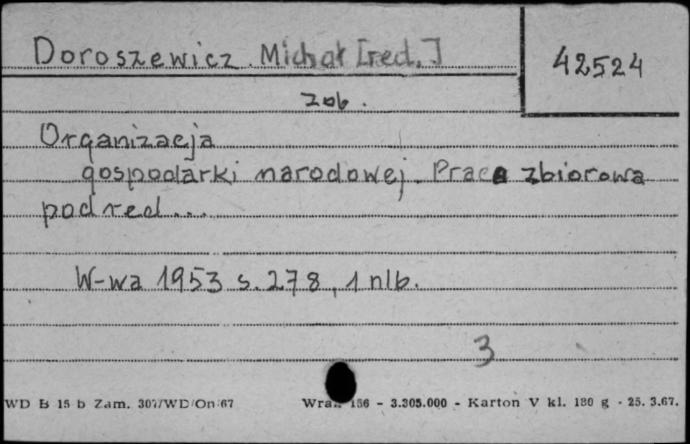 Doroszewicz Michał [red.]
42524
zob.
Organizacja
gospodarki narodowej. Praca zbiorowa
pod red...
W-wa 1953 s. 278, 1 nlb.
3
WD B 15 b Zam. 307/WD/On/67 156 - 3.305.000 - Karton V kl. 180 g - 25. 3.67.